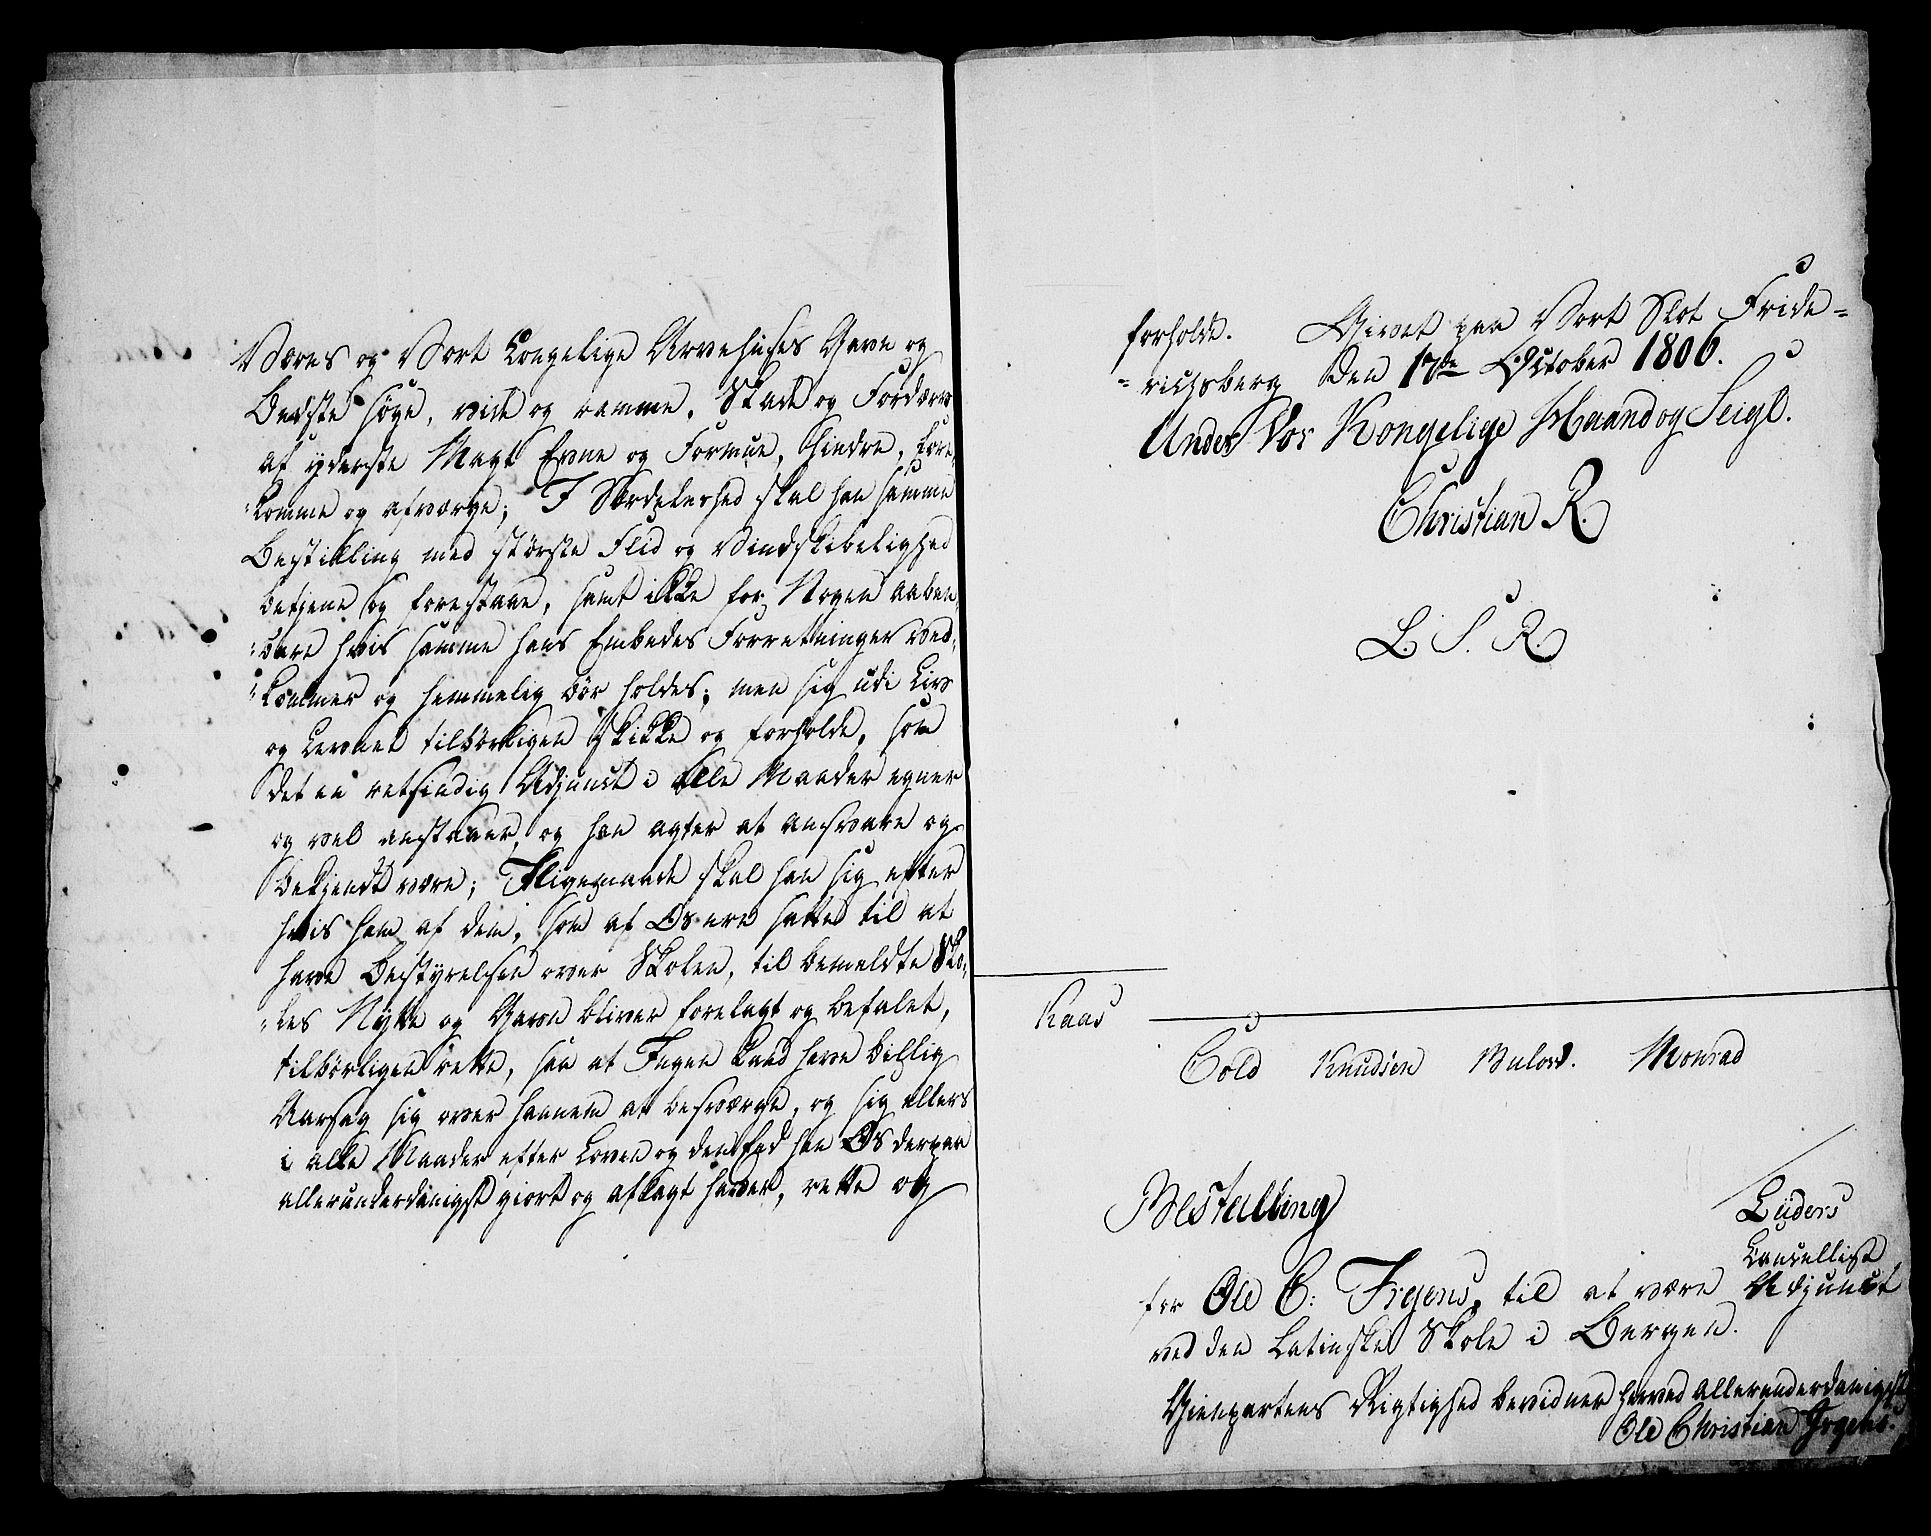 Vores og Vort Kongelige Arvehuses Gavn og
Bedste søge, vide og ramme, Skade og Fordærv
af yderste Magt Evne og Formue, hindre, fore-
-komme og afværge; I Særdeleshed skal han samme
Bestilling med største Flid og Vindskibelighed
betjene og forestaae, samt ikke for Nogen aaben-
-bare hvis samme hans Embedes Forretninger ved-
-kommer og hemmelig bør holdes; men sig udi Liv
og Levnet tilbørligen skikke og forholde, som
det en retsindig Adjunct i alle Maader egner
og vel anstaaer, og han agter at ansvare og
bekjendt være; Iligemaade skal han sig efter
hvis ham af dem, som af Os ere satte til at
have Bestyrelsen over Skolen, til bemeldte Sko-
-les Nytte og Gavn bliver forelagt og befalet,
tilbørligen rette, saa at Ingen kand have billig
Aarsag sig over hannem at besværge, og sig ellers
i alle Maader efter Loven og den Eed han Os derpaa
allerunderdanigst giort og aflagt haver, rette og
forholde. Givet paa Vort Slot Fride-
-richsberg den 17de October 1806.
Under Vor Kongelige Haand og Seigl.
Christian R.
L. S. R.
Kaas
Cold Knudsen Bulow. Monrad
Lüders
Cancellist
Bestalling
for Ole C: Irgens, til at være Adjunct
ved den Latinske Skole i Bergen.
Gienpartens Rigtighed bevidner herved allerunderdanigst
Ole Christian Irgens.